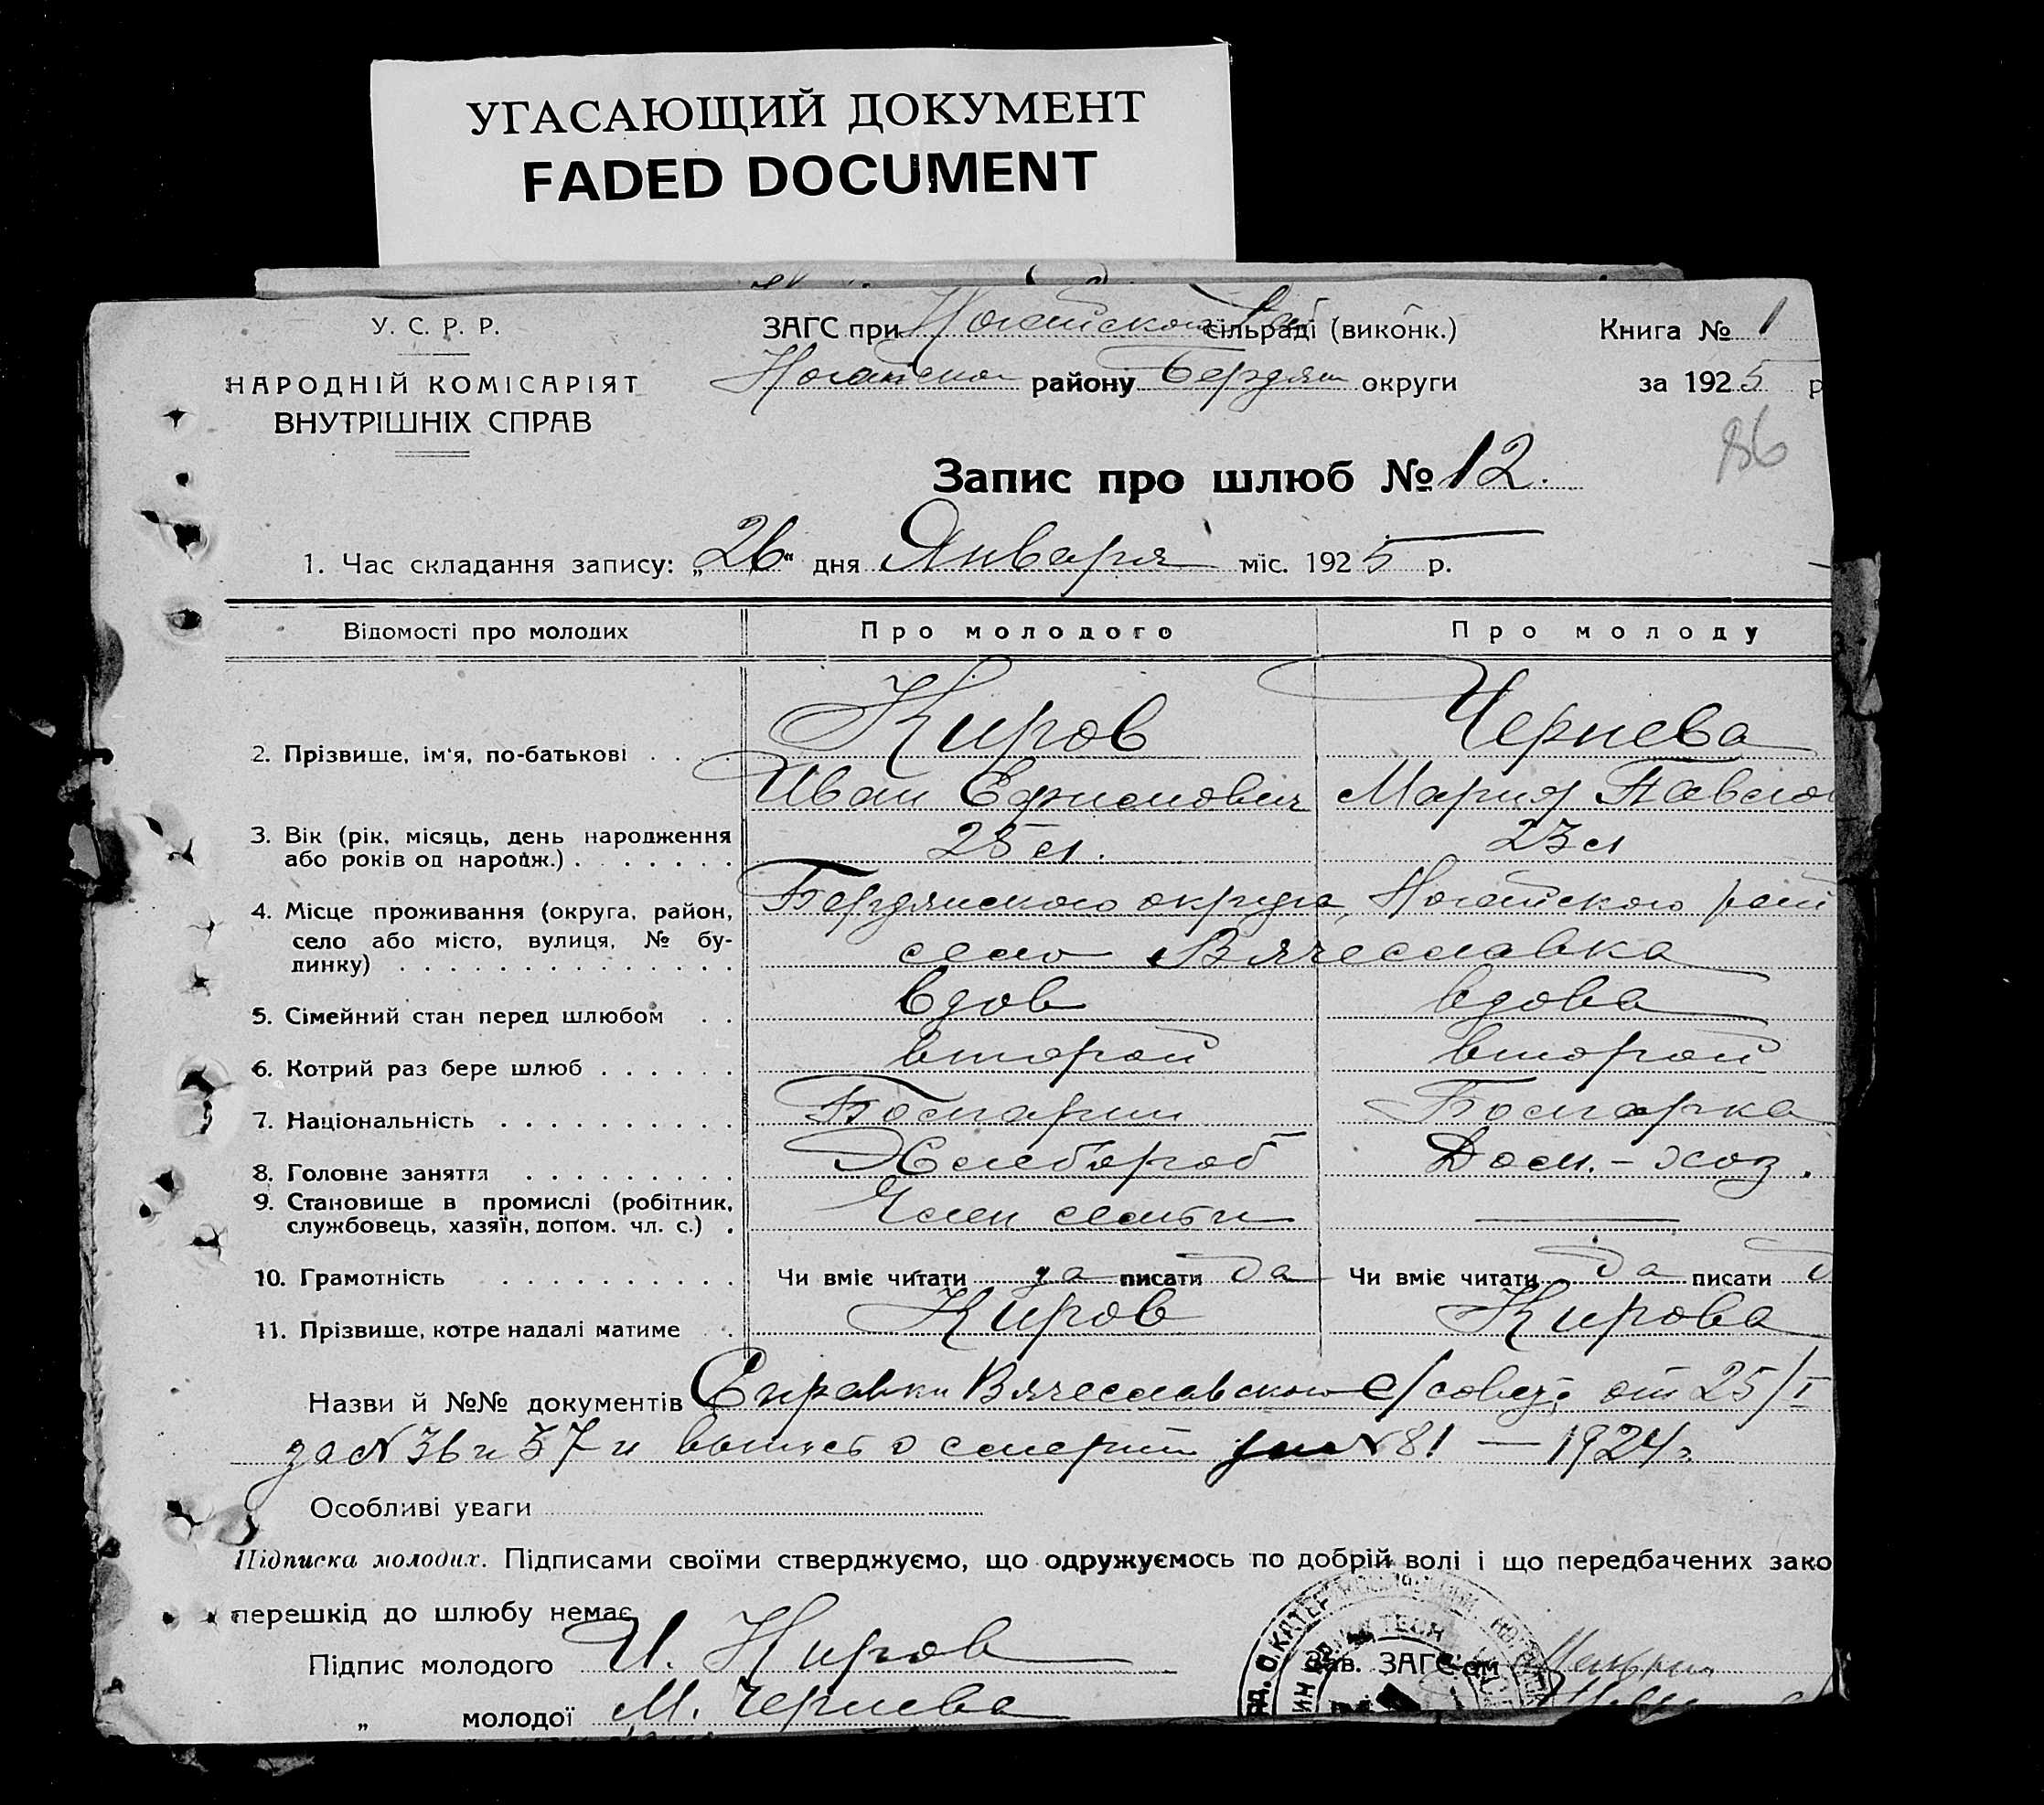 УГАСАЮЩИЙ ДОКУМЕНТ
FADED DOCUMENT
У. С. Р. Р.
НАРОДНІЙ КОМІСАРІЯТ
ВНУТРІШНІХ СПРАВ
ЗАГС при Ногайском сільраді (виконк.)
Ногайско районy Бердян округи
Книга № 1
за 1925 р
86
Запис про шлюб № 12.
1. Час складання запису: „26“ дня Января міс. 1925 р.
Відомості про молодих Про молодого Про молоду
2. Прізвище, ім'я, по-батькові Киров Чернева
Иван Ефимович Мария Павло
3. Вік (рік, місяць, день народження
або років од народж.) 25 л. 23 л
4. Місце проживання (округа, район, Бердянского округа, Ногайского рай
село або місто, вулиця, № бу-
динку) село Вячеславка
5. Сімейний стан перед шлюбом вдов вдова
6. Котрий раз бере шлюб второй второй
7. Національність Болгарин Болгарка
8. Головне заняття Хлебороб Дом.-хоз.
9. Становище в промислі (робітник,
службовець, хазяїн, допом. чл. с.) Член семьи —
10. Грамотність Чи вміє читати да писати да Чи вміє читати да писати д
11. Прізвище, котре надалі матиме Киров Кирова
Назви й №№ документів Справки Вячеславского с/совета от 25/I
за № 36 и 37 и выпись о смерти за № 81 — 1924 г
Особливі уваги
Підписка молодих. Підписами своїми стверджуємо, що одружуємось по добрій волі і що передбачених зако
перешкід до шлюбу немає
Підпис молодого И. Киров
Зав. ЗАГС'ом
„ молодої М. Чернева